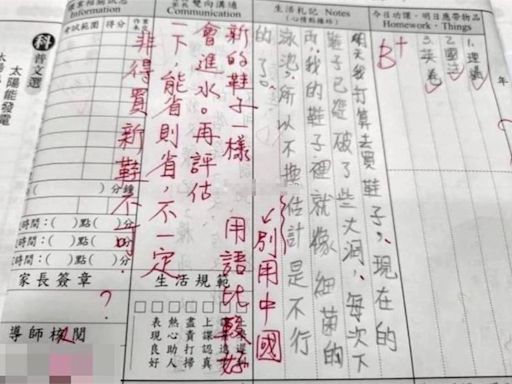 今日功課、明日應帶物品
Homework、Things
年
3.英卷
B+
生活札記 Notes
(心情點播站)
明天我打算去買鞋子,現在的
鞋子已經破了些大洞,每次下
雨,我的鞋子裡就像細菌的
泳池,所以不換估計是不行
的了。
←別用中國
用語比較好
雙向溝通
Communication
新的鞋子一樣
會進水。再評估
下,能省則省,不一定
非得買新鞋不
?
Information
考試範圍 得分
分鐘
時間:( )點( )分
時間:( )點( )分
時間:( )點( )分
家長簽章
導師核閱
生活規範
上課認真
盡責打掃
熱心助人
表現良好
科普文選
太陽能發電